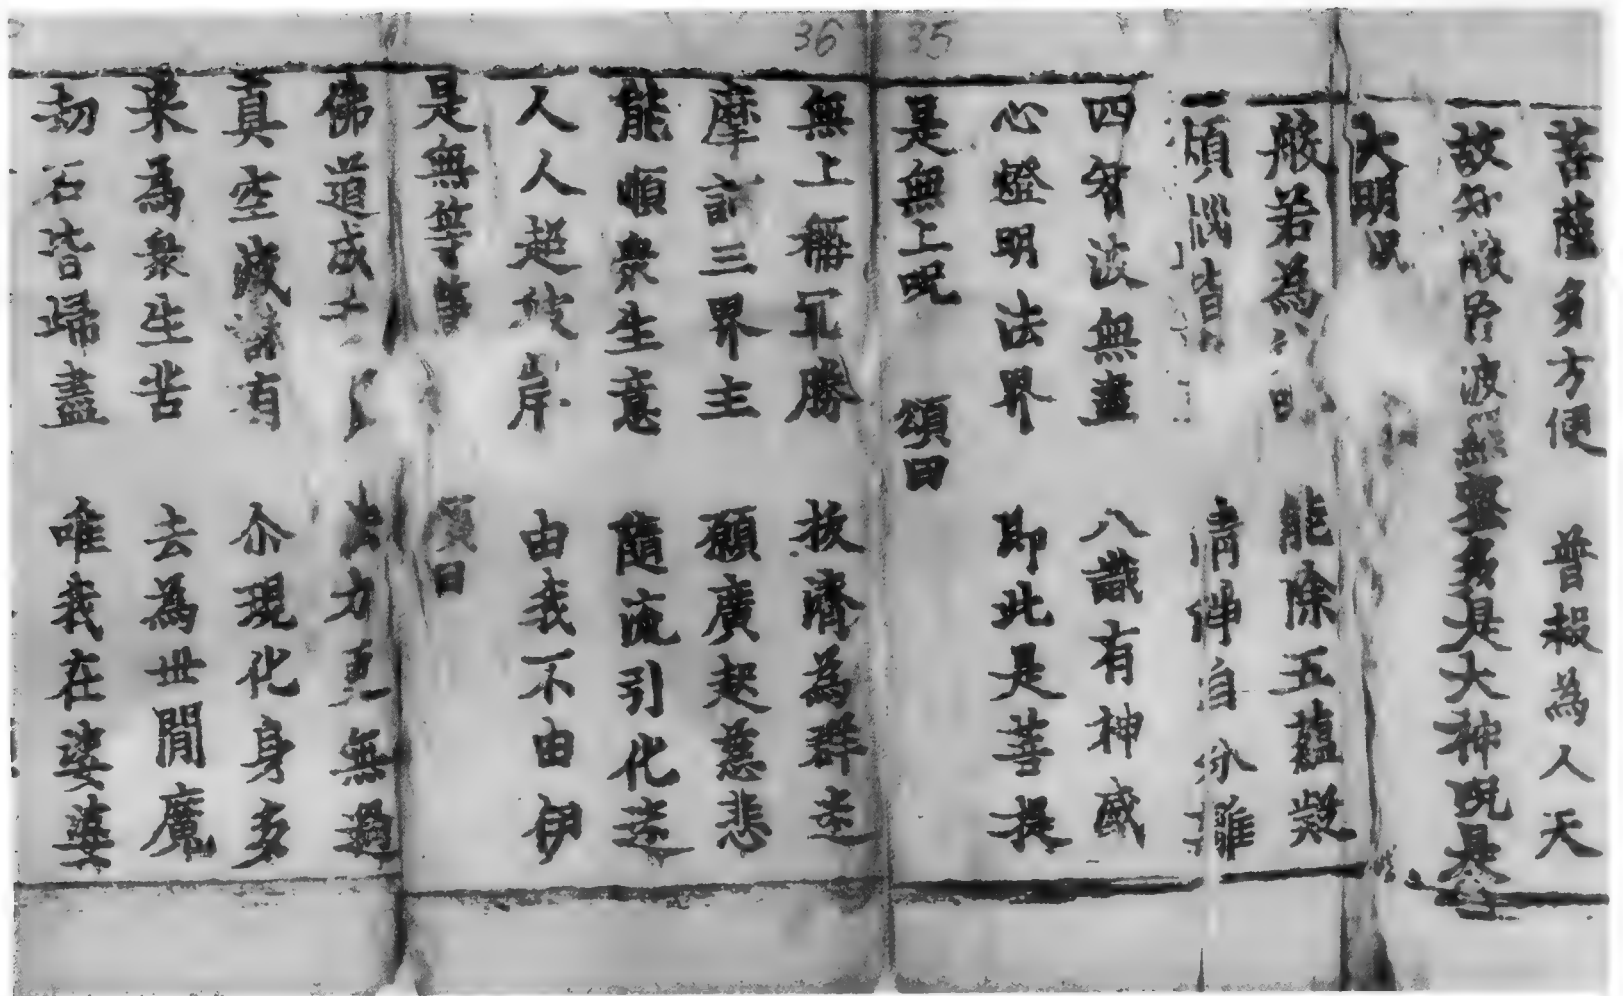 菩薩多方便　普救為人天
故知般若波羅蜜多是大神呪是
大明呪
般若為　能除五蘊凝
煩惱皆　清淨自分離
四智波無盡　八識有神威
心燈明法界　即此是菩提
36 35
是無上呪　頌曰
無上稱冣勝　拔濟為群迷
摩訶三界主　願廣起慈悲
能順衆生意　隨流引化迷
人人超彼岸　由我不由伊
是無等等　頌曰
佛道成　法力更無過
真空藏諸有　尒現化身多
来為衆生苦　去為世間魔
劫石皆歸盡　唯我在娑婆